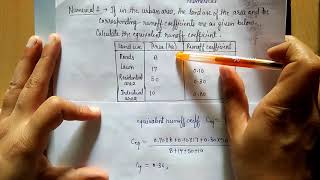 Numerical 2 → If in the urban area, the land use of the area and the
corresponding runoff coefficients are as given below.
Calculate the equivalent runoff coefficient.
Land use Area (ha) Runoff coefficient
Roads 8
Lawn 17 0.10
Residential area 50 0.30
Industrial area 10 0.80
equivalent runoff coeff.
8+17+50+10
= 0.36,